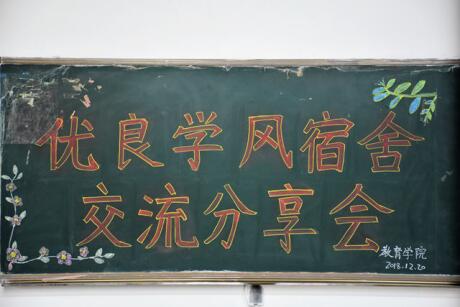 优良学风宿舍
交流分享会
教育学院
2018.12.20